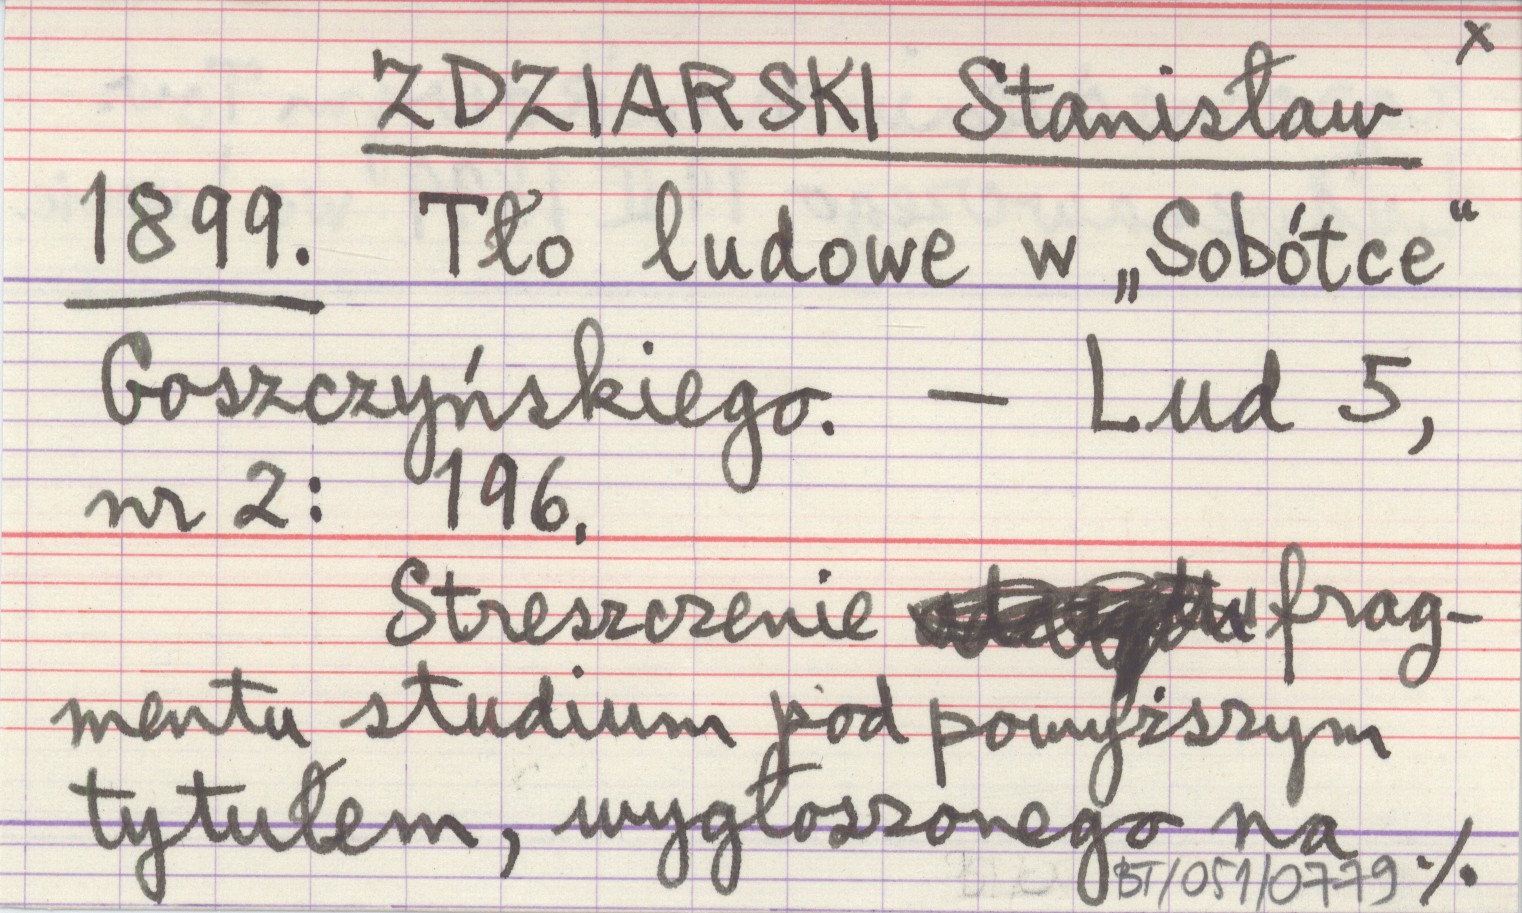 x
ZDZIARSKI Stanisław
1899. Tło ludowe w „Sobótce“
Goszczyńskiego. — Lud 5,
nr 2: 196.
Streszczenie frag-
mentu studium pod powyższym
tytułem, wygłoszonego na ./.
BT/051/0779